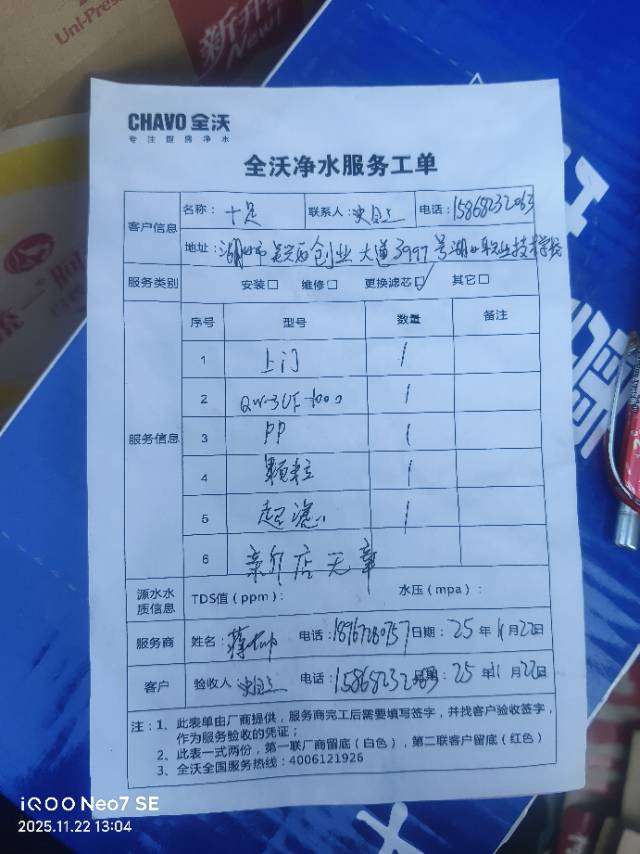 Uni-Pres
新升
New!
CHAVO 全沃
专注厨房净水
全沃净水服务工单
客户信息
名称: 十足 联系人: 电话: 15868232063
地址: 湖州市吴兴区创业大道3997号湖州职业技术学校
服务类别 安装□ 维修□ 更换滤芯☑ 其它□
服务信息
序号 型号 数量 备注
1 上门 1
2 1
3 PP 1
4 颗粒 1
5 超滤 1
6 亲所店无章
源水水质信息 TDS值(ppm): 水压(mpa):
服务商 姓名: 电话: 18967280757 日期: 25年11月22日
客户 验收人 电话: 15868232 日期: 25年11月22日
注:1、此表单由厂商提供,服务商完工后需要填写签字,并找客户验收签字,
作为服务验收的凭证;
2、此表一式两份,第一联厂商留底(白色),第二联客户留底(红色)
3、全沃全国服务热线:4006121926
iQOO Neo7 SE
2025.11.22 13:04